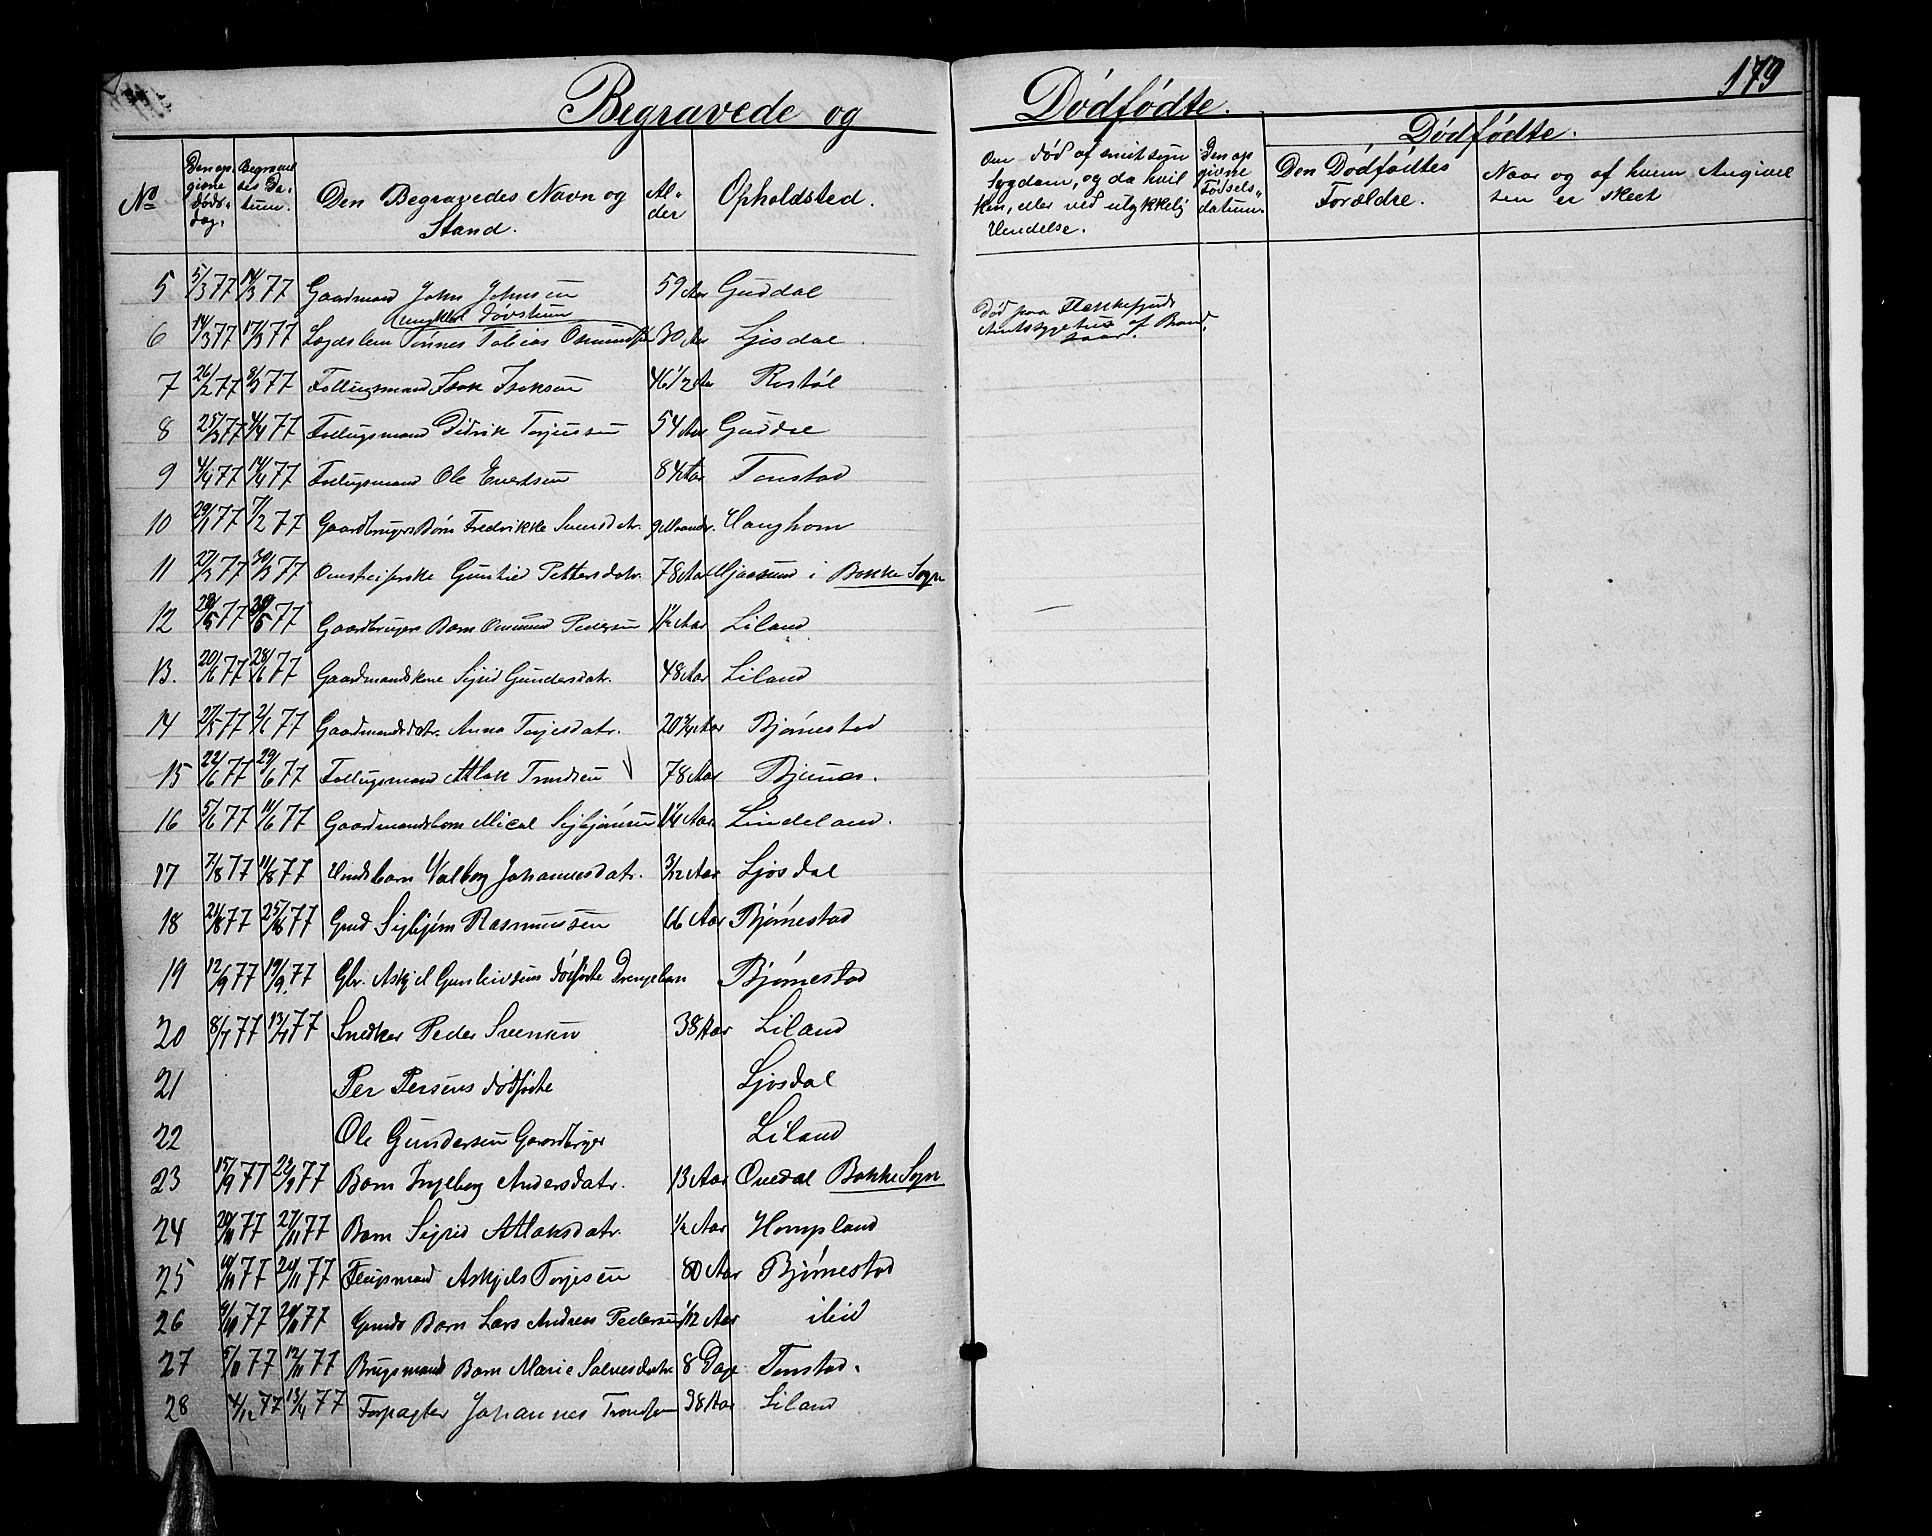 179
Begravede og Dødfødte.
Dødfødte.
No
Den op-
givne
Døds-
dag.
Begravel
ses Da-
tum.
Den Begravedes Navn og
Stand.
Al-
der
Opholdsted.
Om død af smitsom
Sygdom, og da hvil
ken, eller ved ulykkelig
Hendelse.
Den op
givne
Fødsels-
datum.
Den Dødfødtes
Forældre.
Naar og af hvem Angivel
sen er skeet
5 5/3 77 14/3 77 Gaardmand John Johnsen 59 Aar Guddal
Ungkarl døvstum
6 14/3 77 17/3 77 Lægdslem Tønnes Tobias Osmundsen 30 Aar Ljosdal
Død paa Flekkefjords
Amtssygehus af Brand
saar.
7 26/2 77 8/3 77 Follugsmand Isak Isaksen 46 1/2 Aar Rostøl
8 25/3 77 4/4 77 Follugsmand Didrik Torjussen 54 Aar Guddal
9 4/4 77 14/4 77 Follugsmand Ole Evertsen 84 Aar Tonstad
10 29/1 77 7/2 77 Gaardbrugers Børn Fredrikke Svensdatr. 9 Maaneder. Haughom
11 27/3 77 30/3 77 Gunhild Pettersdatr. 78 Aar i Bakke Sogn
12 77 77 Gaardbrugers Barn Osmund Pedersen 1 1/2 Aar Liland
13. 20/6 77 28/6 77 Gaardmandskone Sigrid Gundersdatr. 48 Aar Liland
14 27/5 77 2/6 77 Gaardmandsdatr. Anna Torjesdatr. 20 3/4 Aar Bjørnestad
15 22/6 77 29/6 77 Follugsmand Atlak Trondsen 78 Aar Bjunes.
16 5/6 77 11/6 77 Gaardmandsbarn Mical Sigbjørnsen 1 1/4 Aar Lindeland.
17 7/8 77 11/8 77 Valborg Johannesdatr. 3/12 Aar Ljosdal
18 21/8 77 25/8 77 Gmd Sigbjørn Rasmussen 66 Aar Bjørnestad
19 12/9 77 19/9 77 Gbr. Askjel Gunleivsens dødfødte Drengebarn Bjørnestad
20 8/7 77 13/7 77 Snedker Peder Svensen 38 Aar Liland
21 Per Persens dødfødte Ljosdal
22 Ole Gundersen Gaardbruger Liland
23 15/9 77 22/9 77 Barn Ingeborg Andersdatr. 13 Aar Ovedal Bakke Sogn
24 20/11 77 27/11 77 Barn Sigrid Atlaksdatr. 1/2 Aar Hompland
25 77 24/11 77 Flugsmand Askjels Torjesen 80 Aar Bjørnestad
26 9/10 77 77 Gmds Barn Lars Andreas Pedersen 1/12 Aar ibid
27 5/11 77 12/11 77 Brugsmand Barn Marie Salvesdatr 8 Dage Tonstad.
28 4/12 77 77 Forpagter Johannes Trondsen 38 Aar Liland